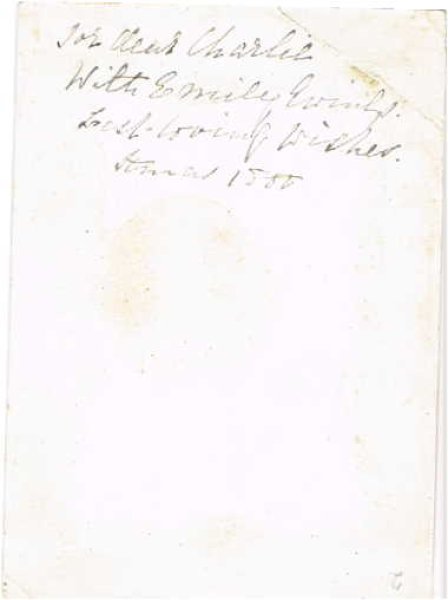 For dear Charlie
With Emily Ewings.
best loving Wishes.
Xmas 188